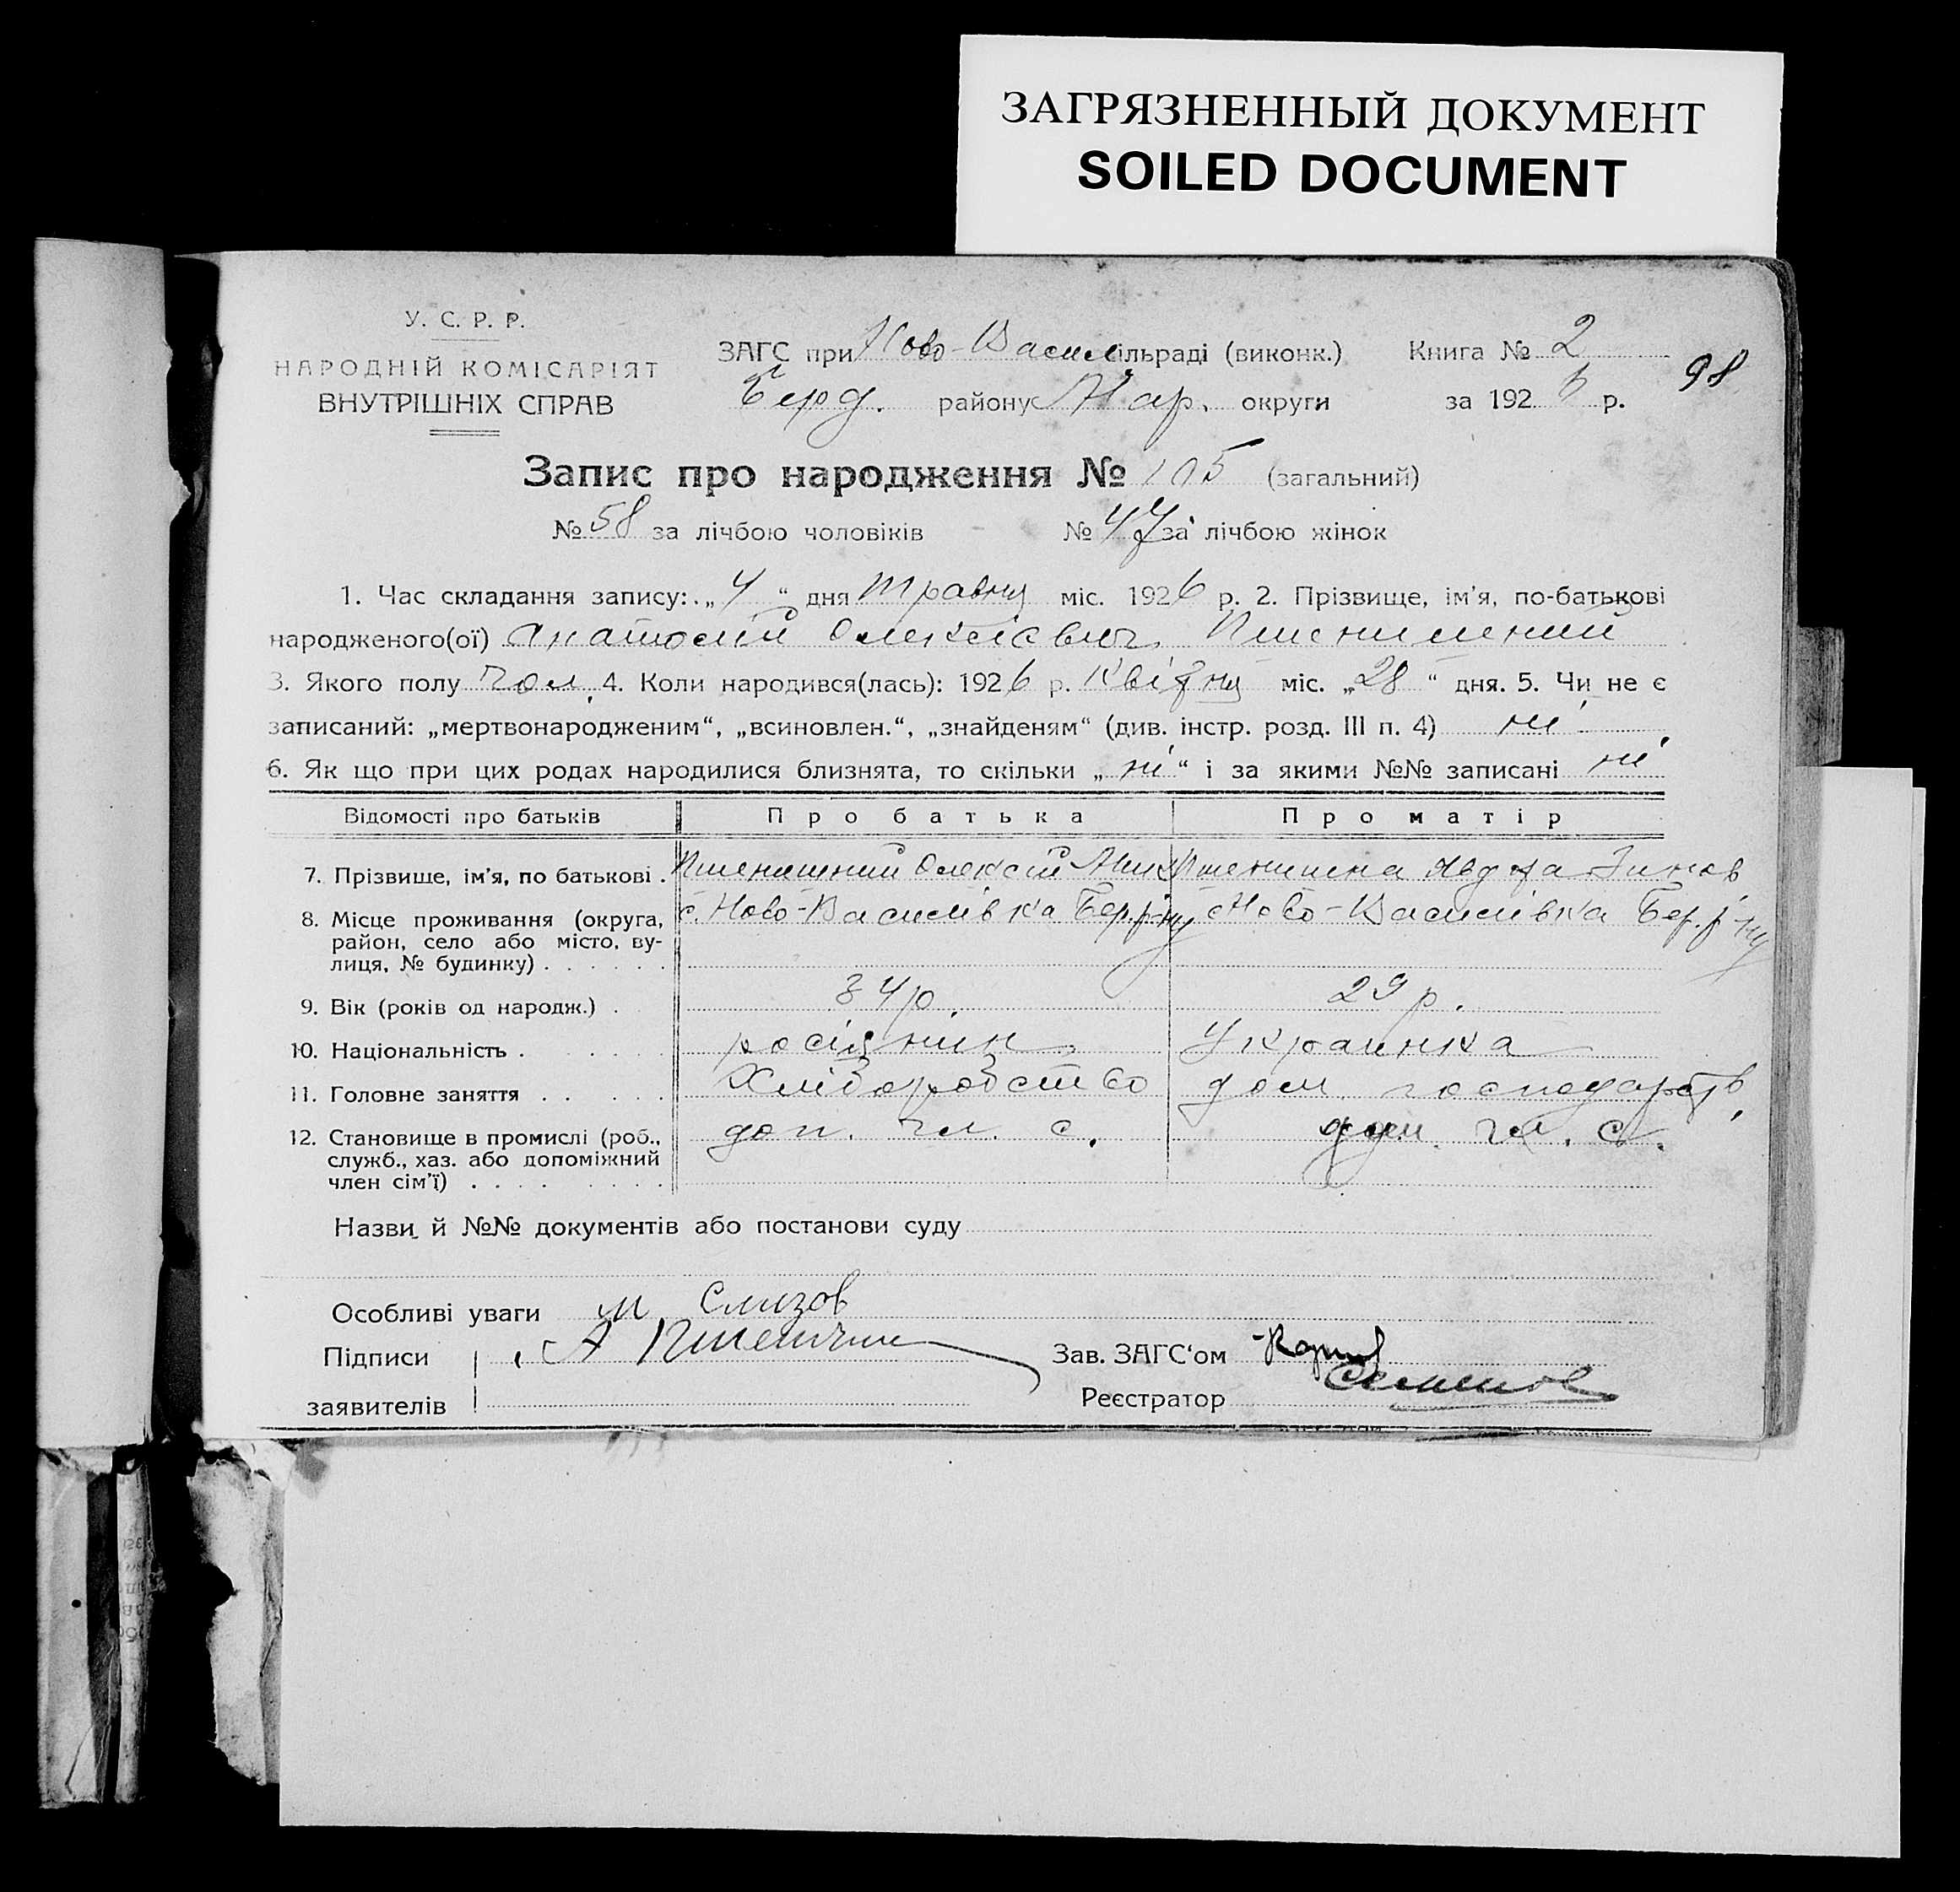 ЗАГРЯЗНЕННЫЙ ДОКУМЕНТ
SOILED DOCUMENT
У. С. Р. Р.
НАРОДНІЙ КОМІСАРІЯТ
ВНУТРІШНІХ СПРАВ
ЗАГС при Ново-Васил сільраді (виконк.) Книга № 2
98
Берд. району Мар. округи за 1926 р.
Запис про народження № 105 (загальний)
№ 58 за лічбою чоловіків № 47 за лічбою жінок
1. Час складання запису: „4“ дня травня міс. 1926 р. 2. Прізвище, ім'я, по-батькові
народженого(ої) Анатолій Олексієвич Пшенишний
3. Якого полу чол. 4. Коли народився(лась): 1926 р. квітня міс. „28“ дня. 5. Чи не є
записаний: „мертвонародженим“, „всиновлен.“, „знайденям“ (див. інстр. розд. III п. 4) ні
6. Як що при цих родах народилися близнята, то скільки „ні“ і за якими №№ записані ні
Відомості про батьків Про батька Про матір
7. Прізвище, ім'я, по батькові . Пшенишний Олексій Пшенишна Явдоха Зинов
8. Місце проживання (округа, с. Ново-Василівка Бер. р-ну с Ново-Василівка Бер. р-ну
район, село або місто, ву-
лиця, № будинку) . . . . . .
9. Вік (років од народж.) . 34 р. 29 р.
10. Національність . росіянин Украинка
11. Головне заняття . . хліборобство дом. господарств.
12. Становище в промислі (роб., доп. чл. с. чл. с.
служб., хаз. або допоміжний
член сім'ї) . . . .
Назви й №№ документів або постанови суду
Особливі уваги
Підписи А Пшенични Зав. ЗАГС'ом
заявителів Реєстратор